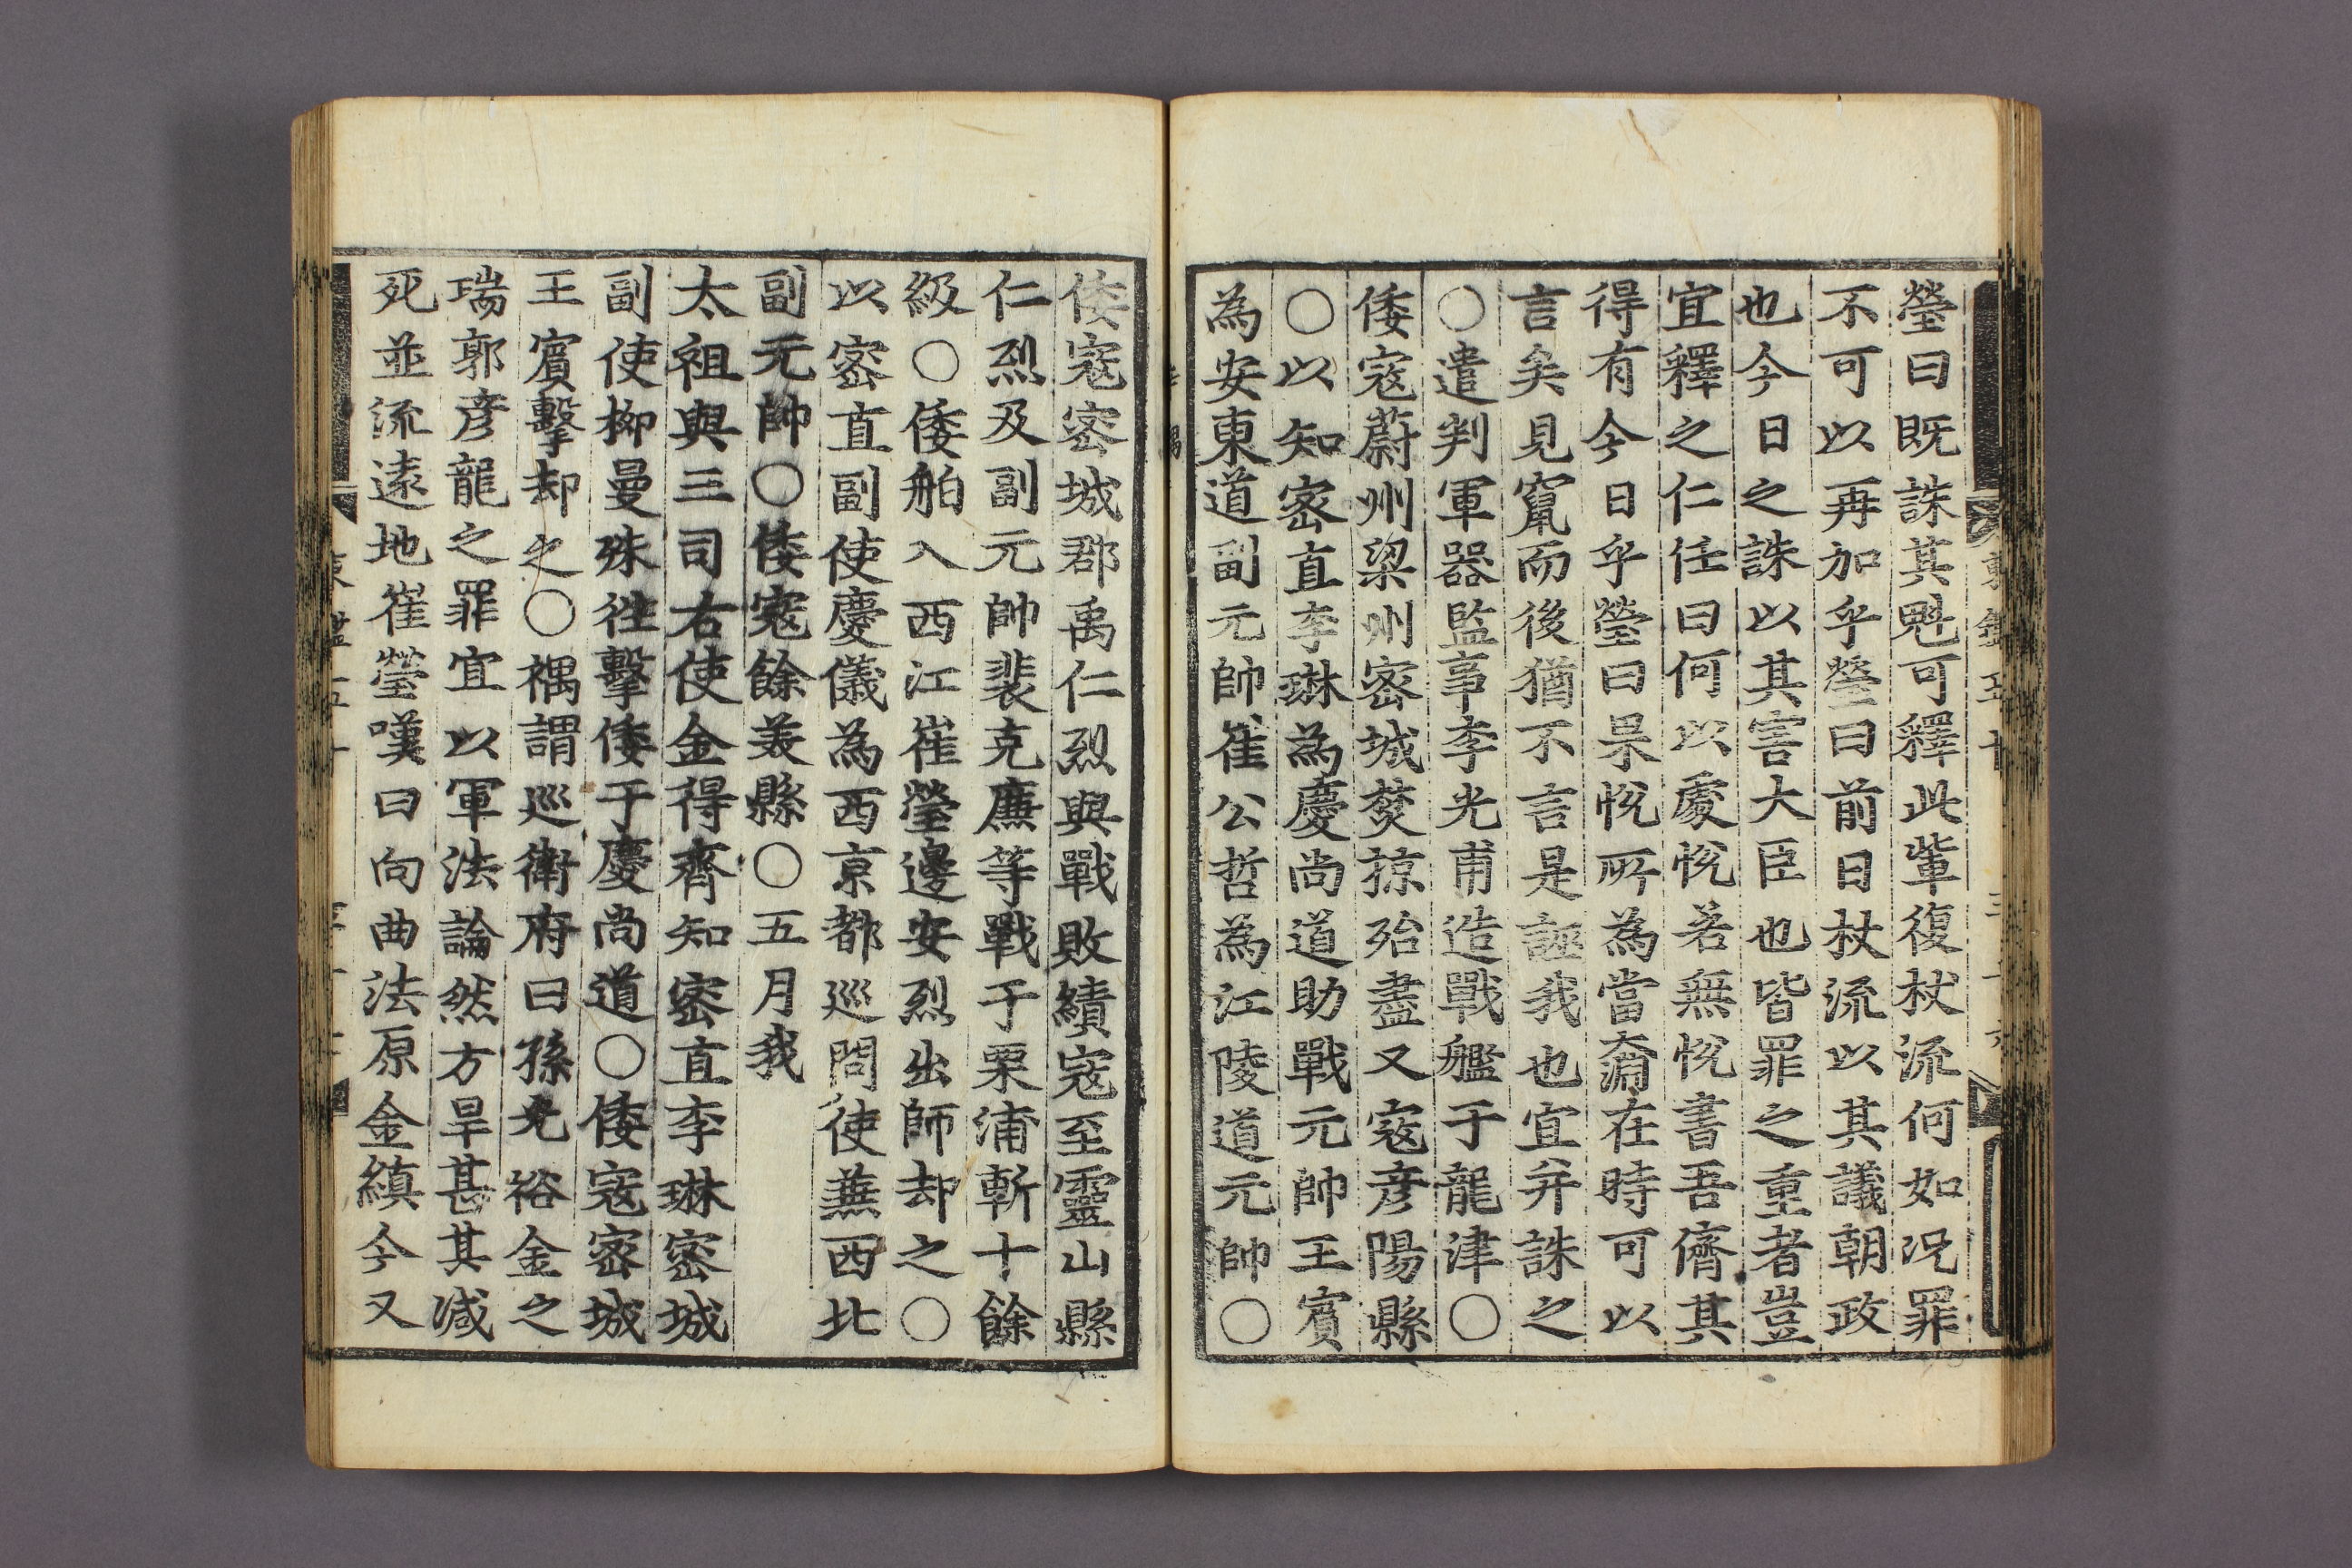 瑩曰既誅其魁可釋此軰復杖流何如況罪
不可以再加乎瑩曰前日杖流以其議朝政
也今日之誅以其害大臣也皆罪之重者豈
宜釋之仁任曰何以處恱若無恱書吾儕其
得有今日乎瑩曰杲恱所為當奫在時可以
言矣見竄而後猶不言是誣我也宜并誅之
○遣判軍器監事李光甫造戰艦于龍津○
倭寇蔚州梁州密城焚掠殆盡又寇彦陽縣
○以知密直李琳為慶尚道助戰元帥王賔
為安東道副元帥崔公哲為江陵道元帥○
倭寇密城郡禹仁烈與戰敗績寇至靈山縣
仁烈及副元帥裴克廉等戰于栗浦斬十餘
級○倭舶入西江崔瑩邊安烈出師却之○
以密直副使慶儀為西京都巡問使蕪西北
副元帥○倭寇餘美縣○五月我
太祖與三司右使金得齊知密直李琳密城
副使柳曼殊徃擊倭于慶尚道○倭寇密城
王賔擊却之○禑謂巡衛府曰孫光裕金之
瑞郭彦龍之罪宜以軍法論然方旱甚其减
死並流逺地崔瑩嘆曰向曲法原金縝今又